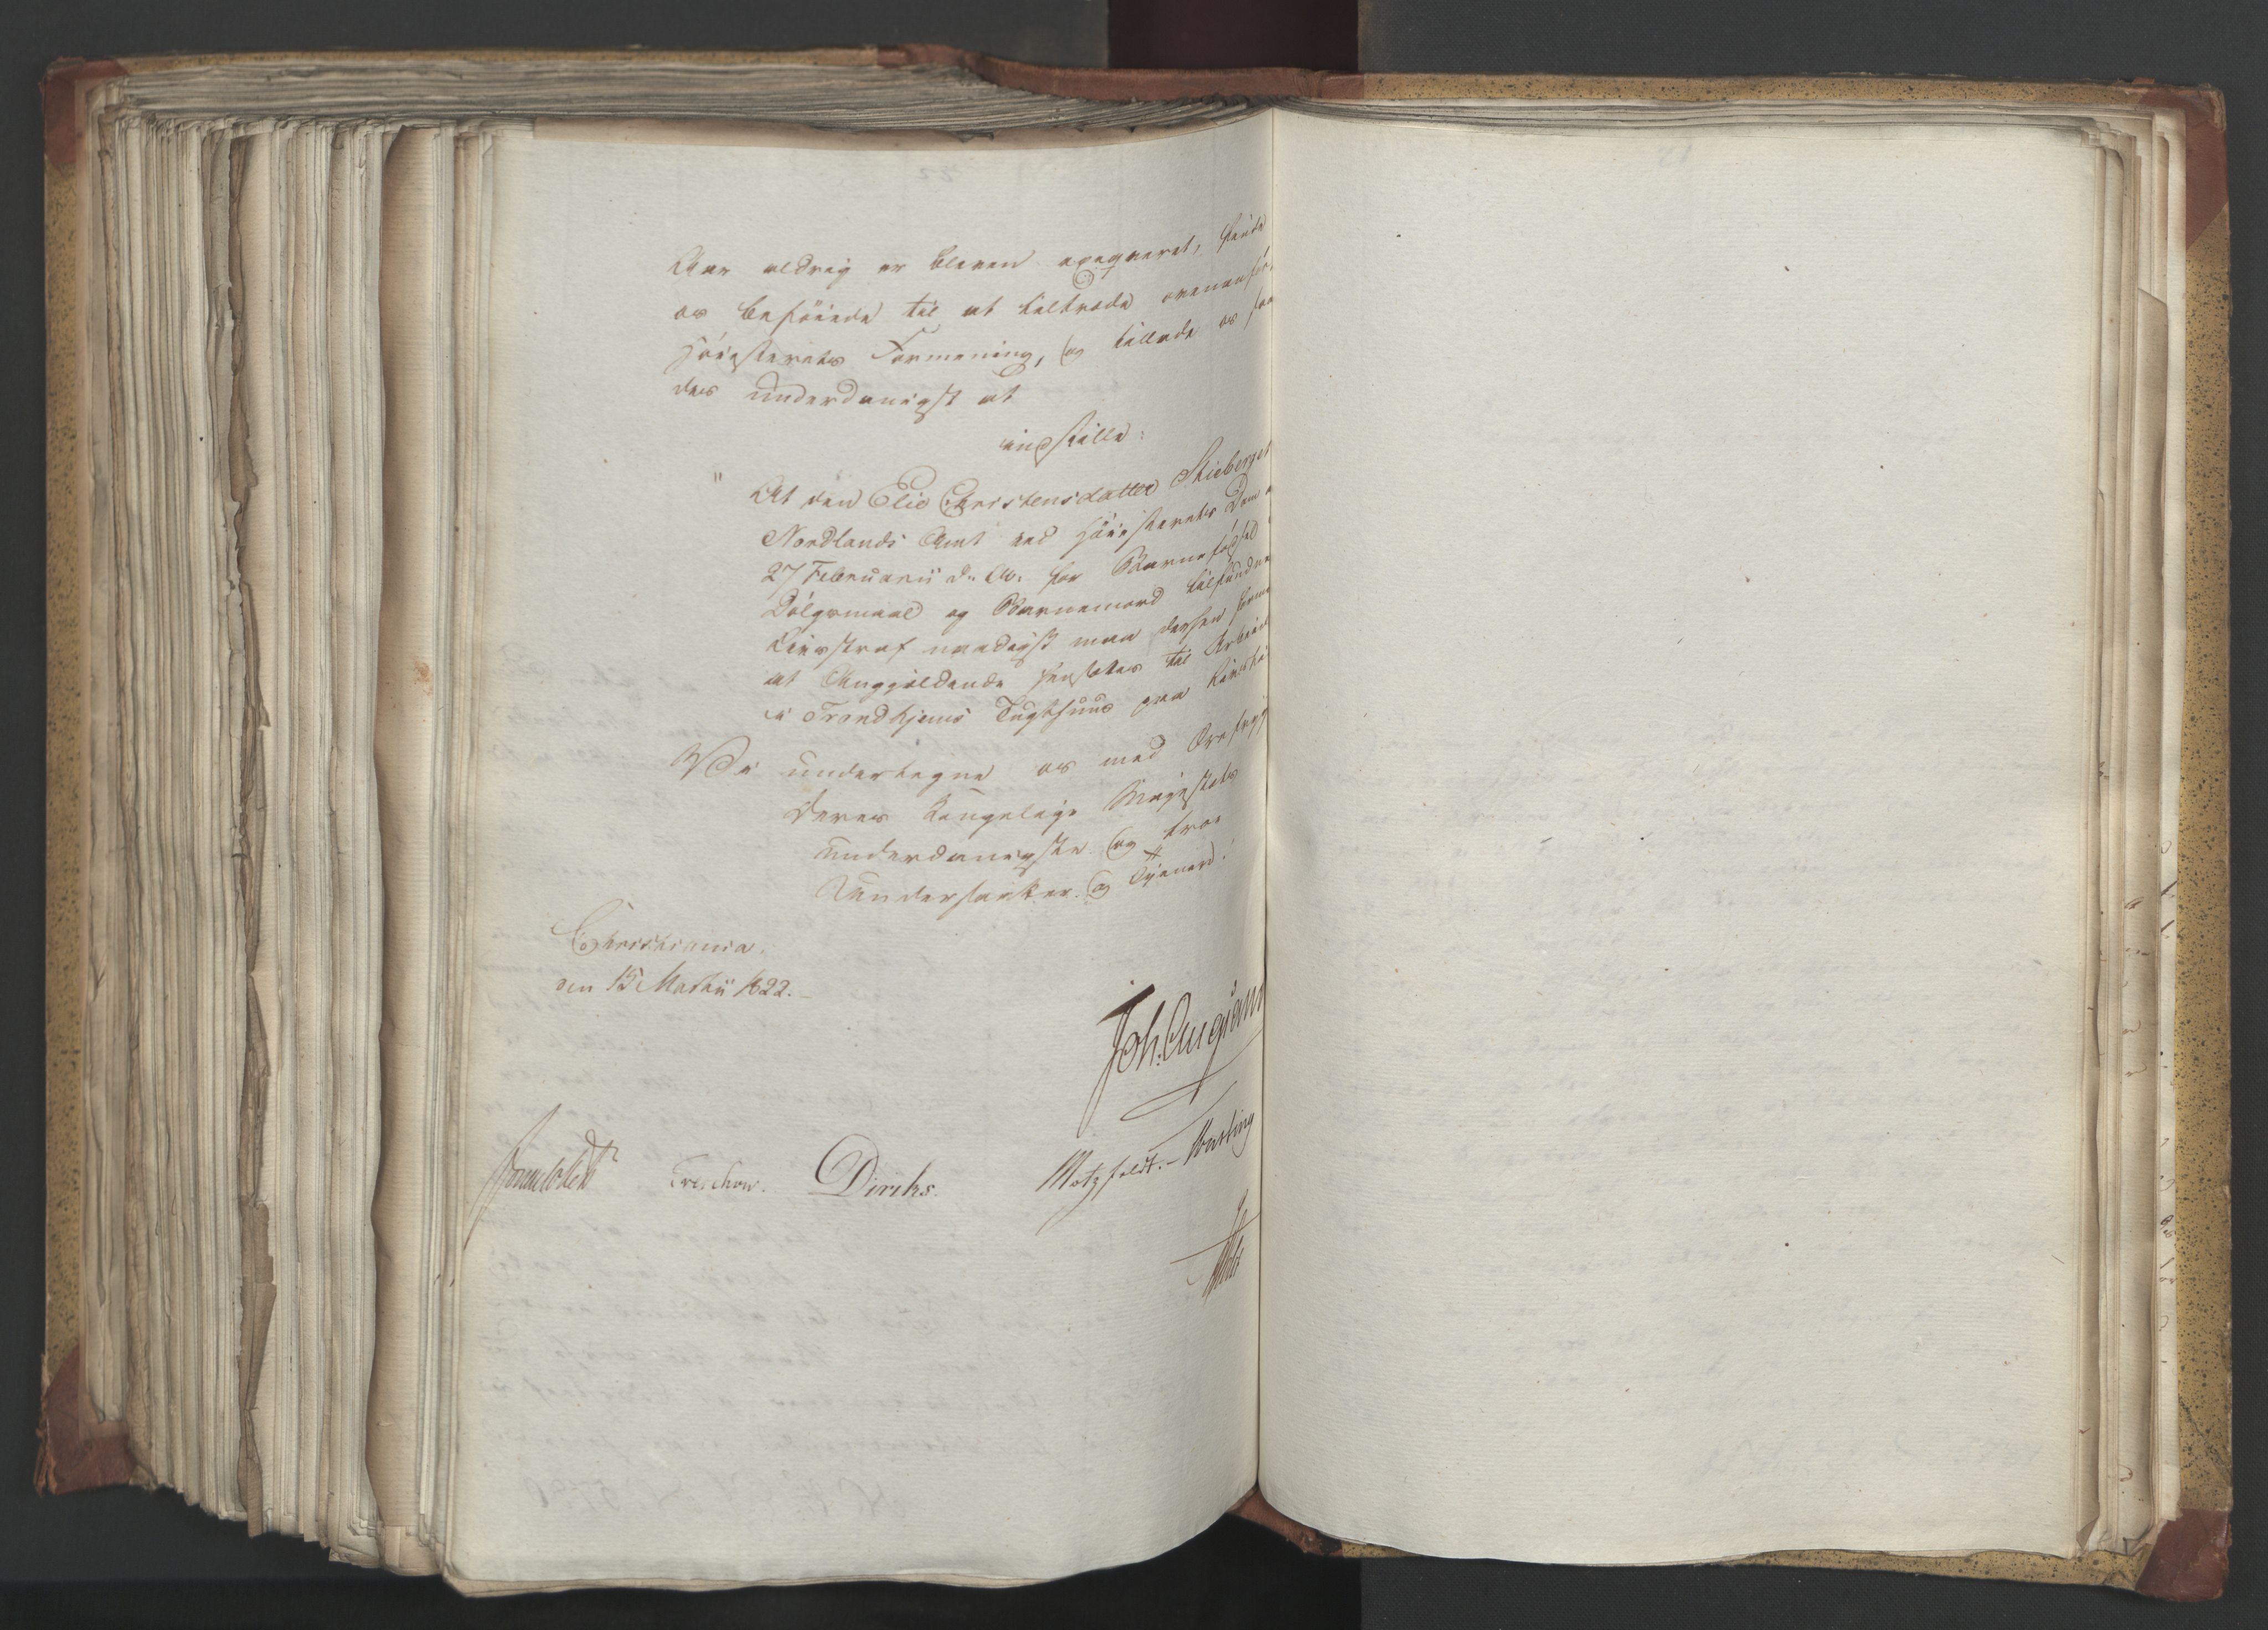 Aar aldrig er bleven exeqveret, finde
os beføiede til at tiltræde ovenanfør,
Høiesterets Formening, og tillade os saa
des underdanigst at
indstille:
" At den Elie Christensdatter Skieberget
Nordlands Amt ved Høiesterets Dom
27 Februarii d: A: for Barnefødsel
Dølgsmaal og Barnemord tilfundne
Livsstraf naadigst maa derhen
at Angjeldende hensættes til Arbeide
i Trondhjems Tugthuus paa Livstid
Vi undertegne os med Ærefrygt
Deres Kongelige Majestæts
underdanigste og troe
Undersaatter og Tjenere.
Christiania.
den 15 Martii 1822.
Joh. Collett
Sommerhielm Treschow. Diriks. Motzfeldt. Fasting